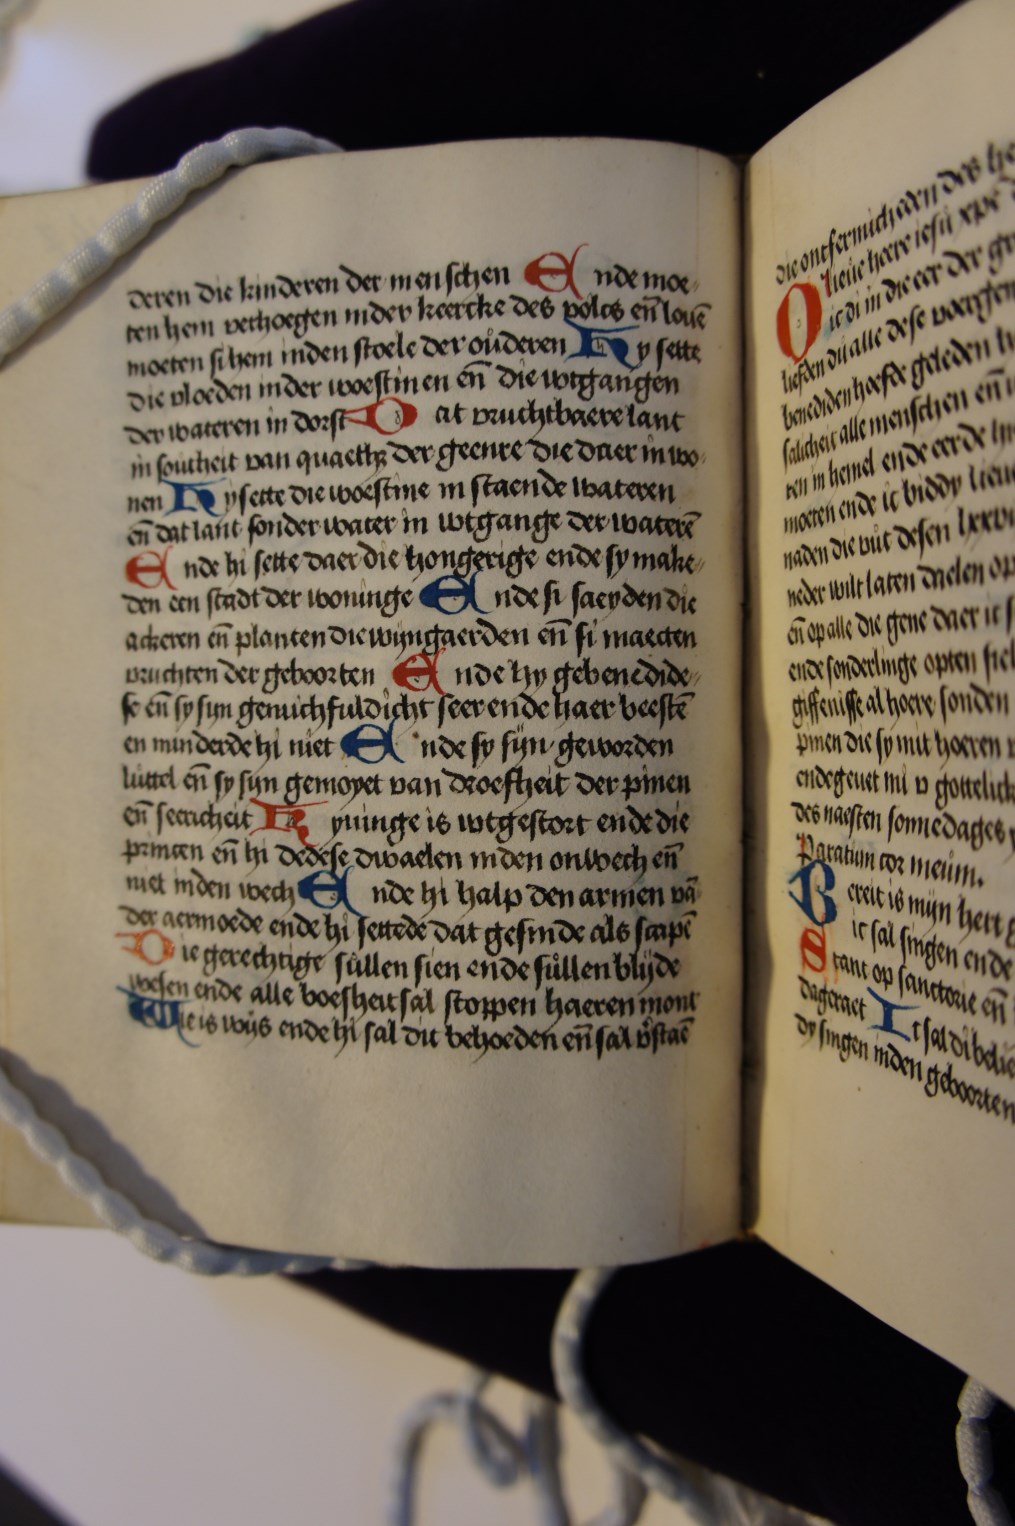 deren die kinderen der menschen Ende moe
ten hem verhoegen inder keercke des volcs en̄ louē
moeten si hem inden stoele der oůderen Hy sette
die vloeden inder woestinen en̄ die wtgangen
der wateren in dorst Dat vruchtbaere lant
in southeit van der geenre die daer in wo
nen Hy sette die woestine in staende wateren
en̄ dat lant sonder water in wtgange der waterē
Ende hi sette daer die hongerige ende sy make
den een stadt der woninge Ende si saeyden die
ackeren en̄ planten die wijngaerden en̄ si maecten
vruchten der geboorten Ende hy gebenedide
se en̄ sy sijn genuichfuldicht seer ende haer beestē
en minderde hi niet Ende sy sijn geworden
luttel en̄ sy sijn gemoyet van droefheit der pinen
en̄ seericheit Kyuinge is wtgestort ende die
princen en̄ hi dedese dwaelen inden onwech en̄
niet inden wech Ende hi halp den armen vā
der aermoede ende hi settede dat gesinde als scapē
Die gerechtige sůllen sien ende sůllen blijde
wesen ende alle boesheit sal stoppen haeren mont
Wie is wijs ende hi sal dit behoeden en̄ sal v̊staē
die ontfermicheden des
O lieue heere iesu xpe
ic di in die eer der
liefden du alle dese
benediden hoefde geleden
salicheit alle menschen en̄
ren in hemel ende eerde
moeten ende ic biddy lieue
naden die wt desen
neder wilt laten daelen op
en̄ op alle die gene daer ic
ende sonderlinge opten
giffenisse al hoere sonden
pinen die sy mit hoeren
ende geuet mi v gotteliek
des naesten sonnedages
Paratum cor meum.
Bereit is mijn hert
ic sal singen ende
Stant op sanctorie en̄
dageraet Ic sal di belie
dy singen inden geboorten